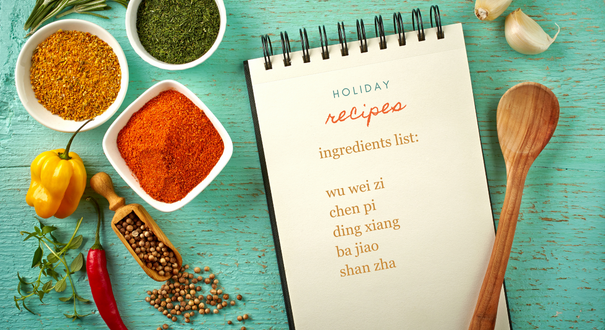 HOLIDAY
recipes
ingredients list:
wu wei zi
chen pi
ding xiang
ba jiao
shan zha